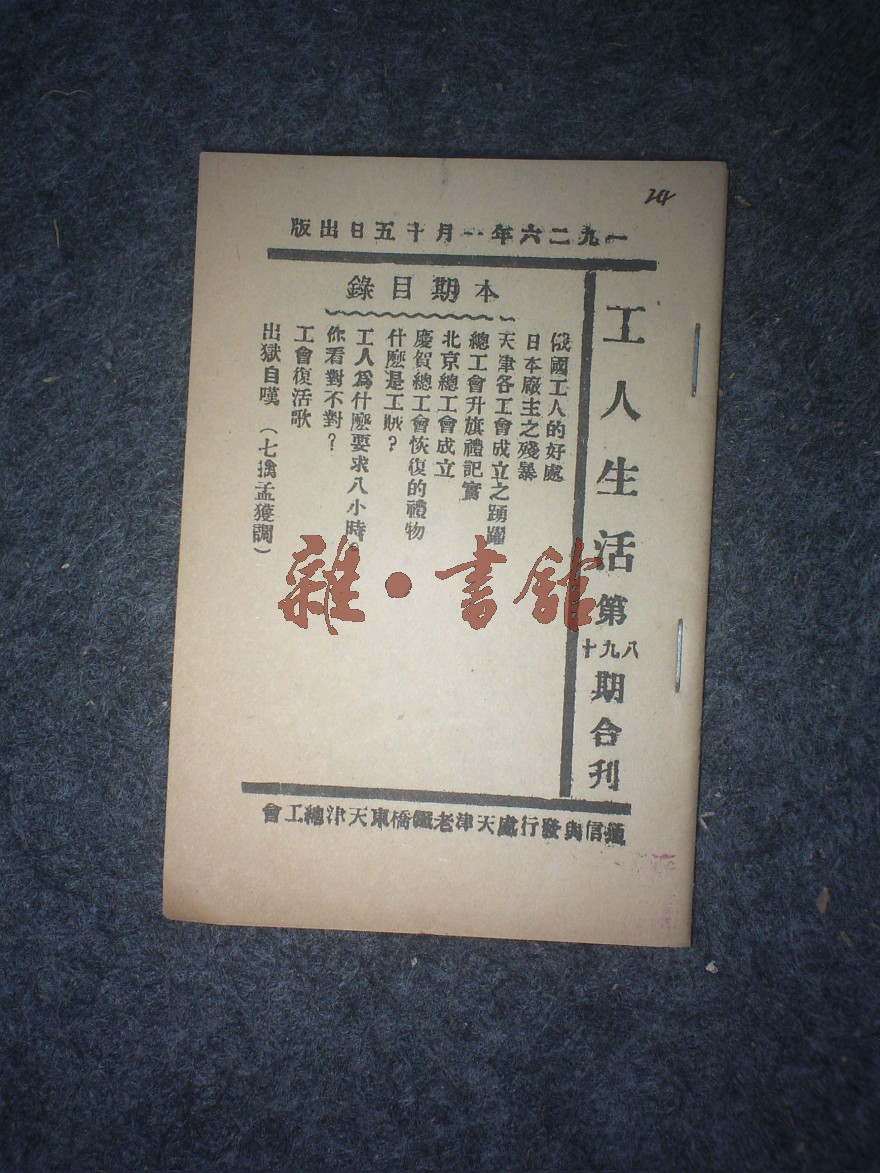 一九二六年一月十五日出版
工人生活第八九十期合刊
本期目錄
俄國工人的好處
日本廠主之殘暴
天津各工會成立之踴躍
總工會升旗禮記實
北京總工會成立
慶賀總工會恢復的禮物
什麼是工賊？
工人爲什麼要求八小時？
你看對不對？
工會復活歌
出獄自嘆（七擒孟獲調）
通信與發行處天津老鐵橋東天津總工會
雜·書館